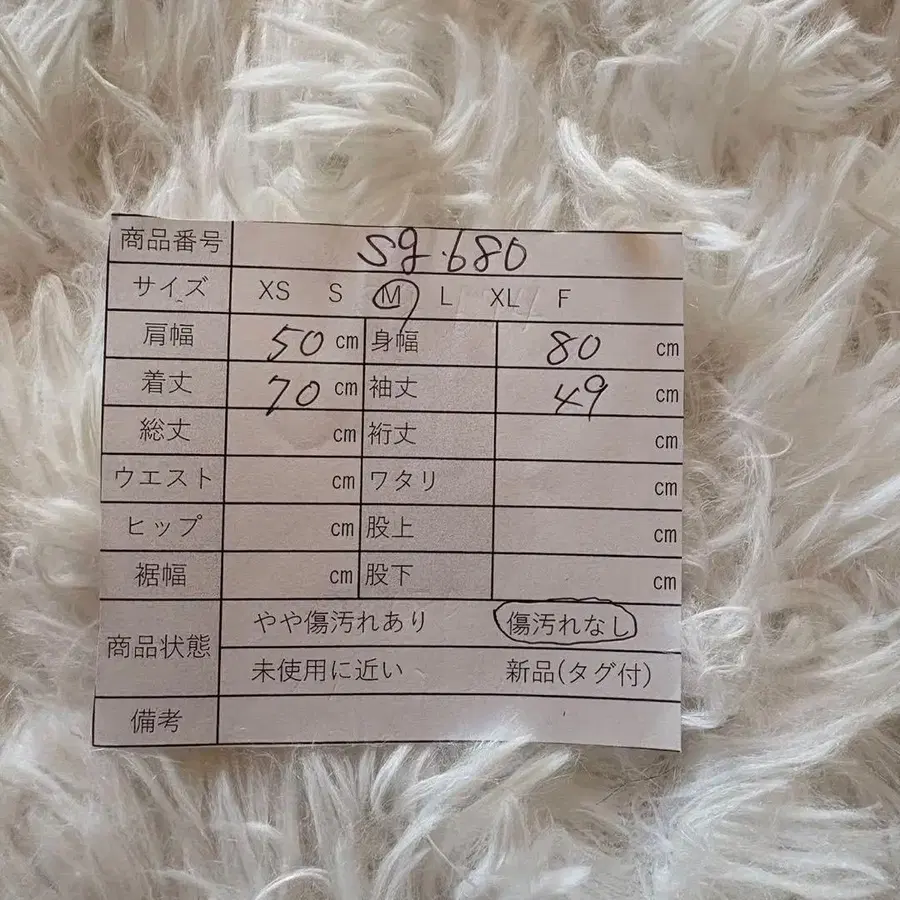 商品番号 sg.680
サイズ XS S M L XL F
肩幅 50 cm 身幅 80 cm
着丈 70 cm 袖丈 49 cm
総丈 cm 裄丈 cm
ウエスト cm ワタリ cm
ヒップ cm 股上 cm
裾幅 cm 股下 cm
商品状態 やや傷汚れあり 傷汚れなし
未使用に近い 新品(タグ付)
備考